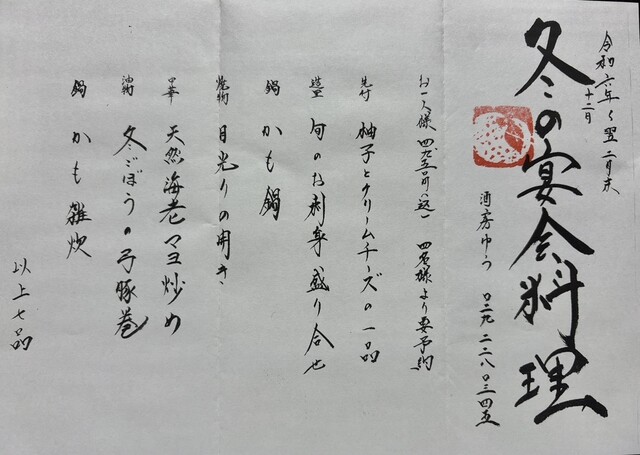 令和六年十二月〜翌二月末
冬の宴会料理
酒房ゆう 〇二九 二二八 〇三四五
お一人様 四九五〇円(込) 四名様より要予約
先付 柚子とクリームチーズの一品
造里 旬のお刺身盛り合せ
鍋 かも鍋
焼物 目光りの開き
中華 天然海老マヨ炒め
油物 冬ごぼうの弓豚巻
鍋 かも雑炊
以上七品